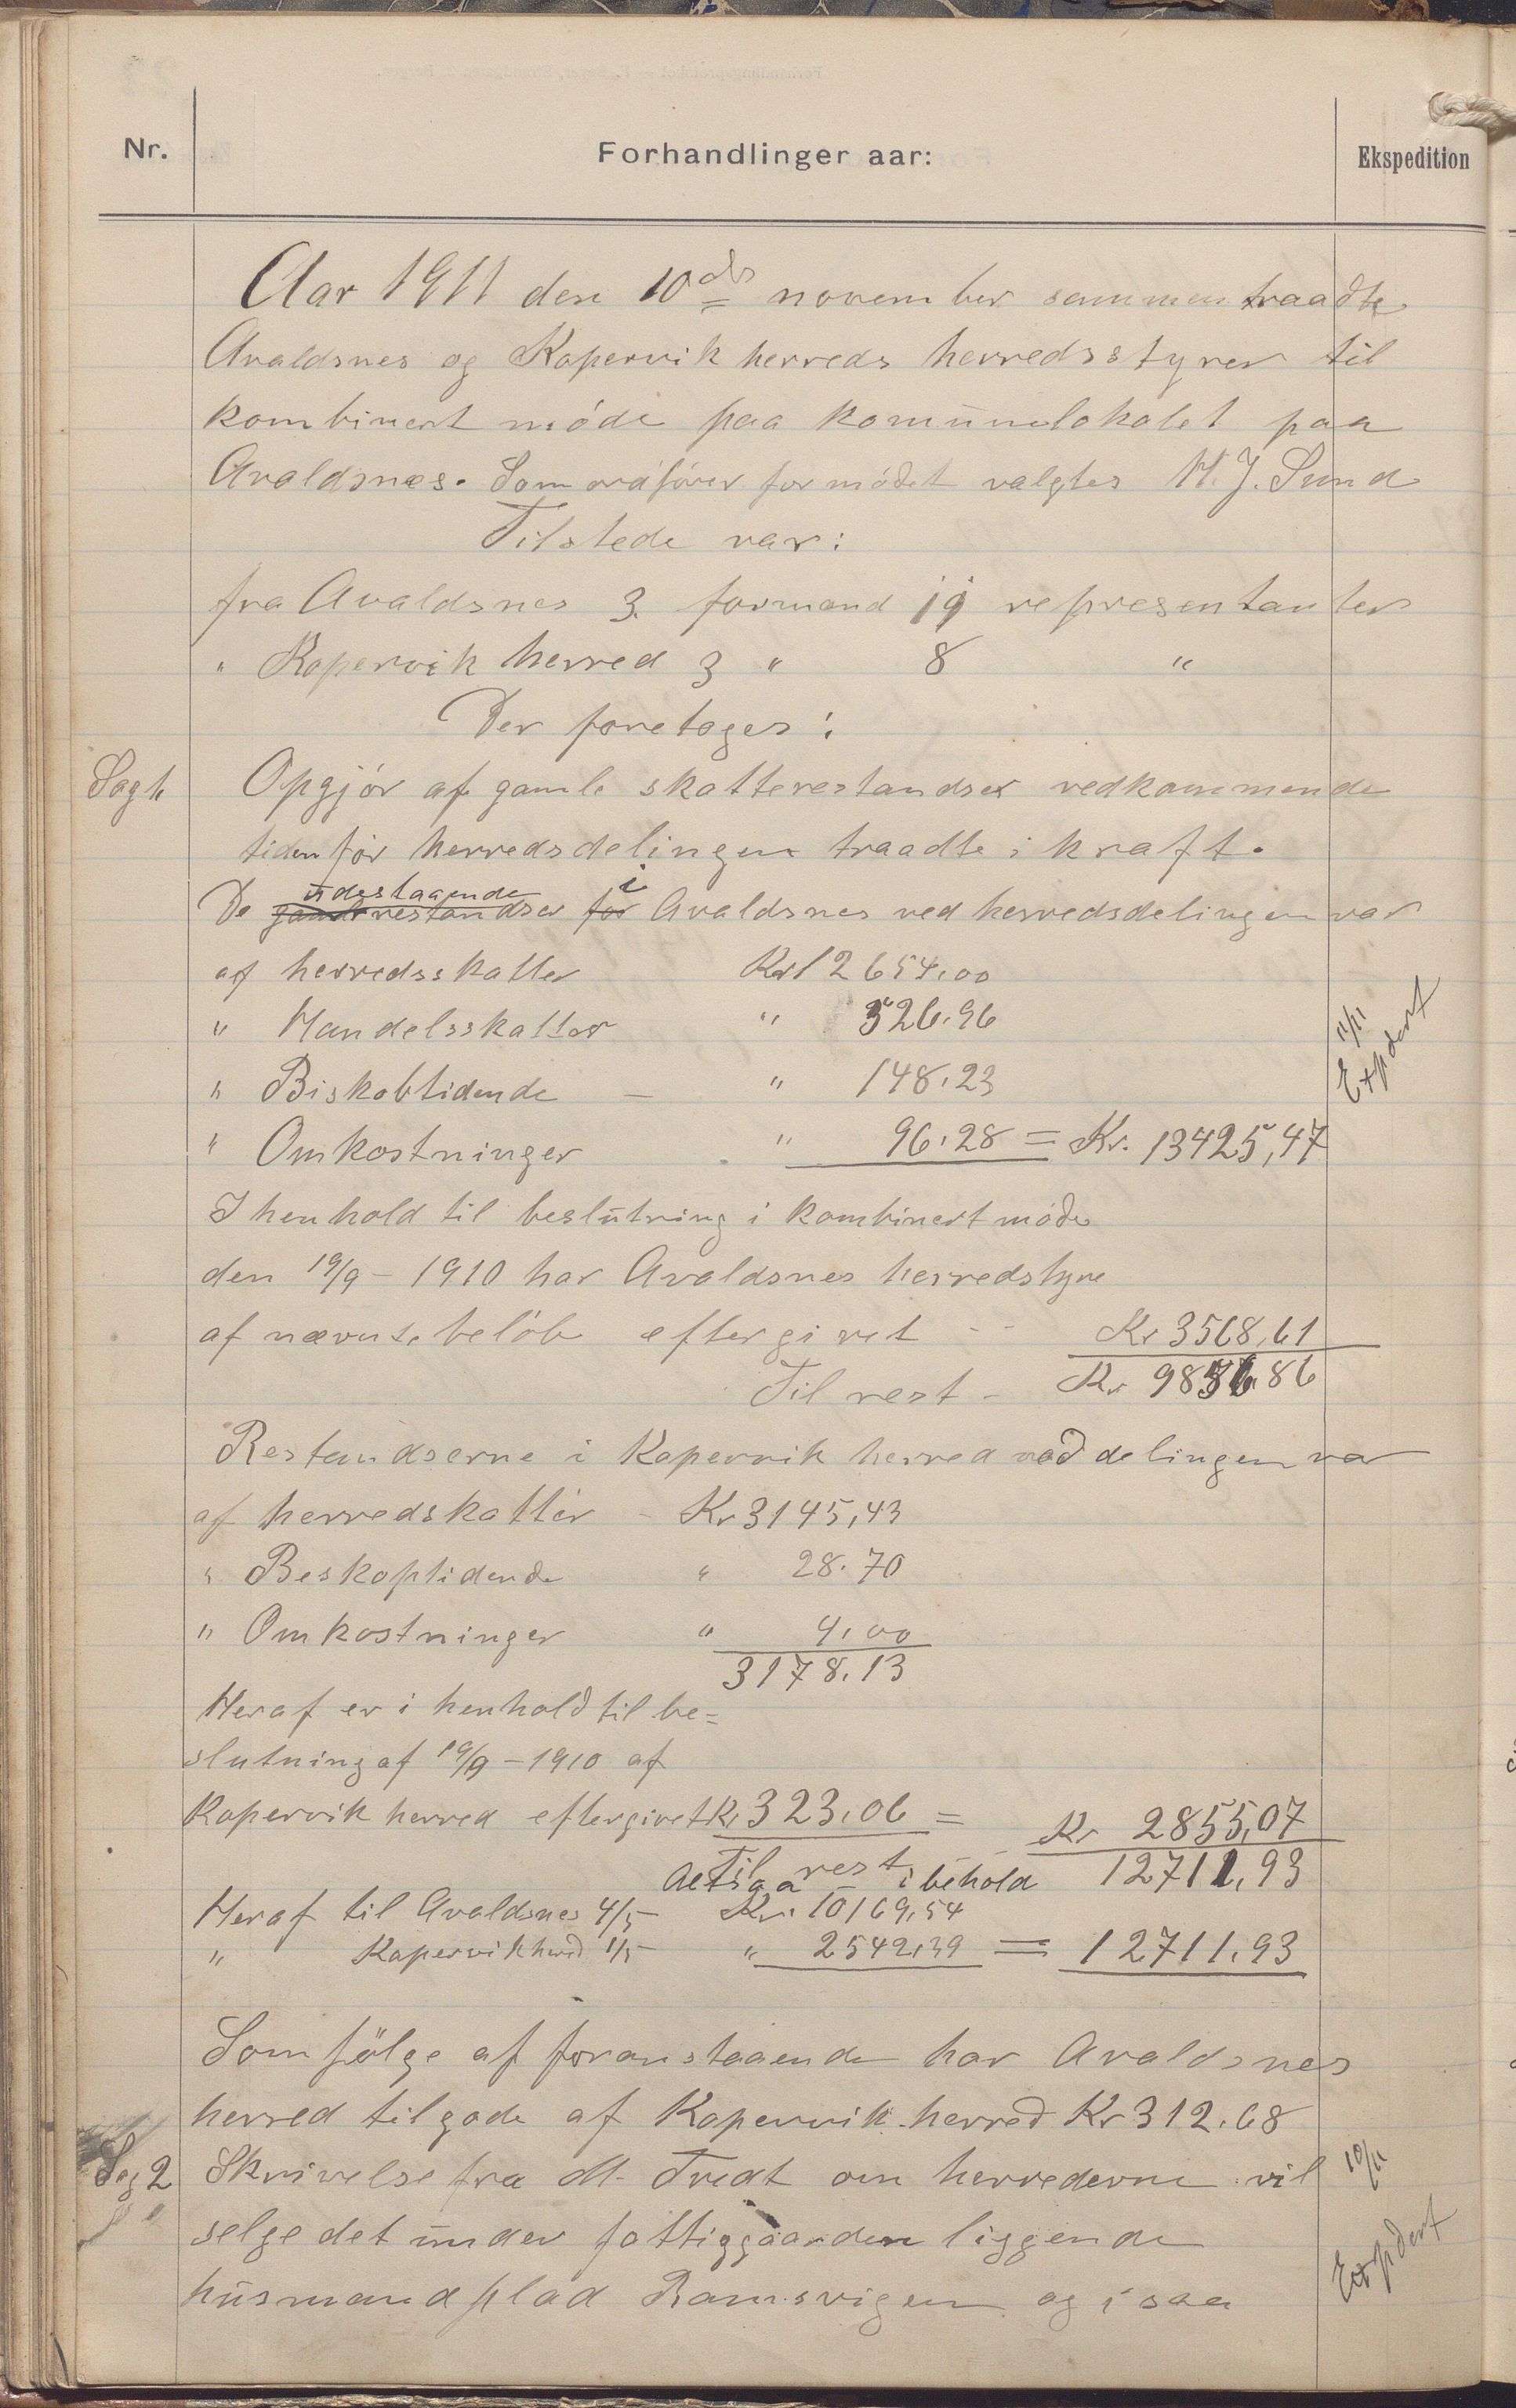 Nr.
Forhandlinger aar:
Ekspedition
Aar 1911 den 10de november sammentraadte
Avaldsnes og Kopervik herreds herredsstyrer til
kombinert møde paa komunelokalet paa
Avaldsnes. Som ordfører for mødet valgtes H. J. Sund
Tilstede var:
fra Avaldsnes 3 formænd 19 representanter
" Kopervik herred 3 " 8 "
Der foretoges:
Sag 1.
Opgjør af gamle skatterestandser vedkommende
tiden før herredsdelingen traadte i kraft.
udestaaende i
De gamle restandser for Avaldsnes ved herredsdelingen var
af herredsskatter Kr 12654,00
" Handelsskatter " 526.96
" Biskobtidende – " 148.23
" Omkostninger " 96.28 = Kr. 13425,47
11/11 Expdert
I henhold til beslutning i kombinert møde
den 19/9 – 1910 har Avaldsnes herredstyre
af nævnte beløb eftergivet Kr 3568,61
Til rest – Kr 9856.86
Restandserne i Kopervik herred ved delingen var
af herredskatter – Kr 3145,43
" Beskoptidende " 28.70
" Omkostninger " 4,00
3178.13
Heraf er i henhold til be=
slutning af 19/9 – 1910 af
Kopervik herred eftergivet Kr 323,06 = Kr 2855,07
Til rest
Altsaa i behold 12711,93
Heraf til Avaldsnes 4/5 – Kr. 10169,54
" Kopervik herred 1/5 – " 2542,39 = 12711.93
Som følge af foranstaaende har Avaldsnes
herred tilgode af Kopervik herred Kr 312.68
Sag 2
Skrivelse fra M. Tvedt om herrederne vil
10/11
selge det under fattiggaarden liggende
Expdert
husmandplad Ramsvigen og i saa